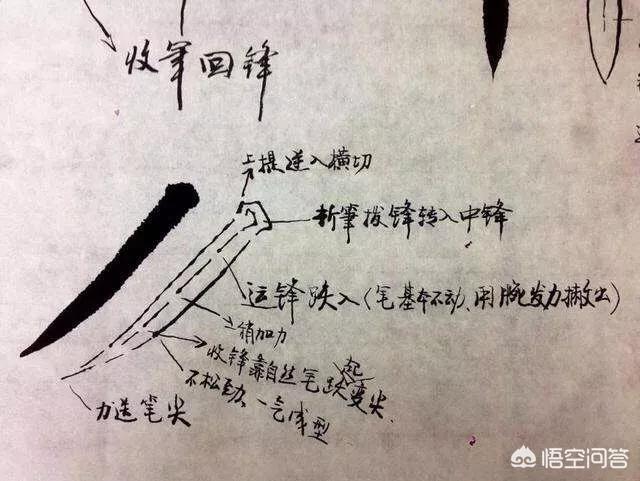 收笔回锋
上提逆入横切
折筆拔锋转入中锋
运锋跌入(笔基本不动、用腕发力撇出)
稍加力
收锋靠自然笔跌起变尖
不松劲、一气成型
力送笔尖
悟空问答